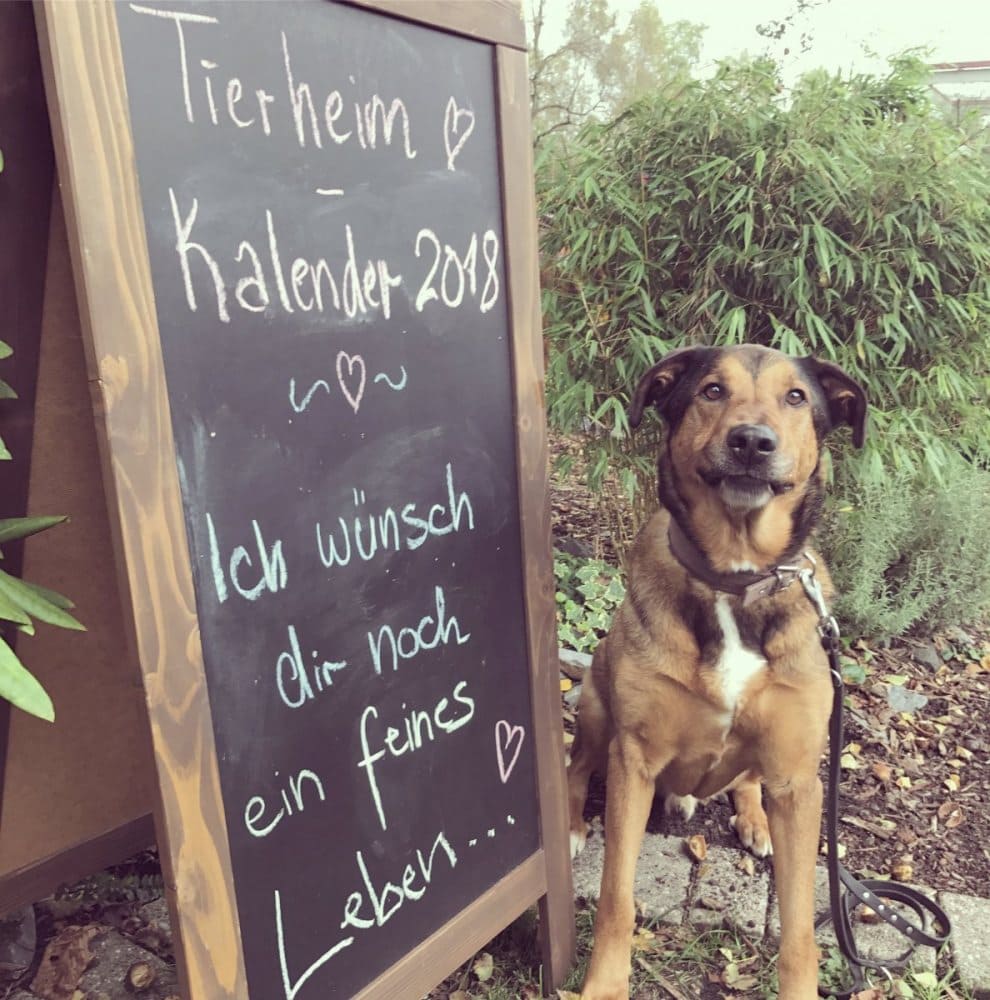 Tierheim
-
Kalender 2018
~ ~
Ich wünsch
dir noch
ein feines
Leben...